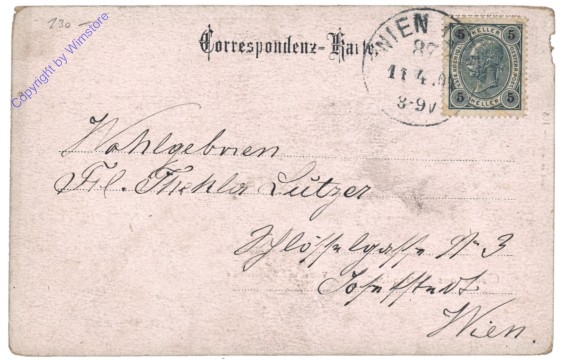 130 –
Copyright by Wimstore
Correspondenz-Karte
WIEN 1
87
11.4.0
8-9V
5 HELLER 5
5 HELLER 5
Wohlgeboren
Frl. Thekla Lutzer
Schlösselgasse Nr 3
Josefstadt
Wien.